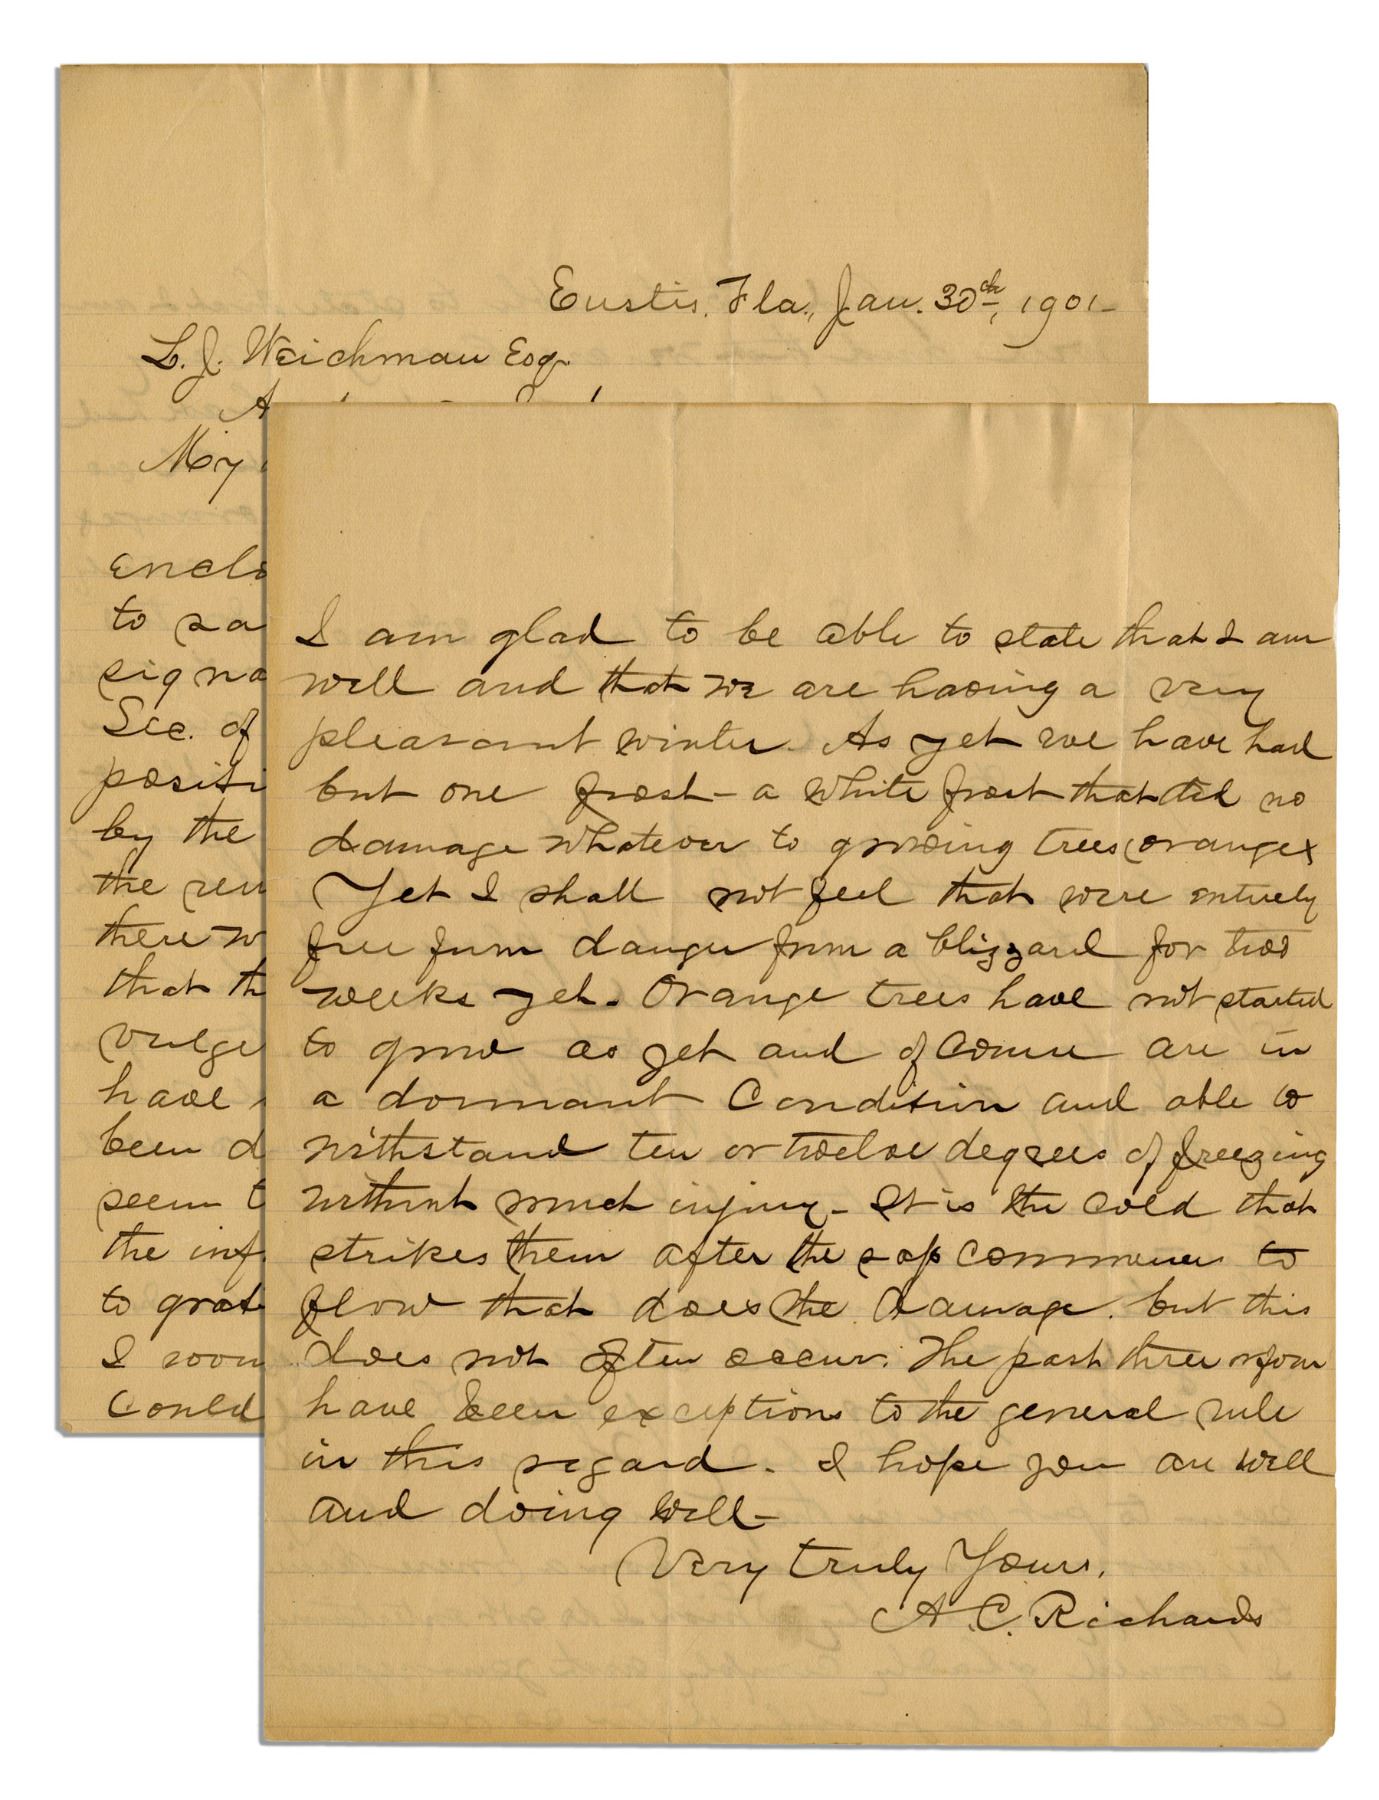 Eustis, Fla., Jan. 30th, 1901-
L. J. Weichman Esq.
My
enclo
to sa
signa
Sec. of
positi
by the
the rem
there w
that th
vulge
have
been d
seem t
the inf
to grat
I woul
Could
I am glad to be able to state that I am
well and that we are having a very
pleasant winter. As yet we have had
but one frost - a white frost that did no
damage whatever to growing trees (oranges
Yet I shall not feel that were entirely
free from danger from a blizzard for two
weeks yet. Orange trees have not started
to grow as yet and of course are in
a dormant Condition and able to
withstand ten or twelve degrees of freezing
without much injury - It is the cold that
strikes them after the sap commences to
flow that does the damage. but this
does not often occur. The past three or four
have been exceptions to the general rule
in this regard. I hope you are well
and doing well -
Very truly Yours,
A. C. Richards